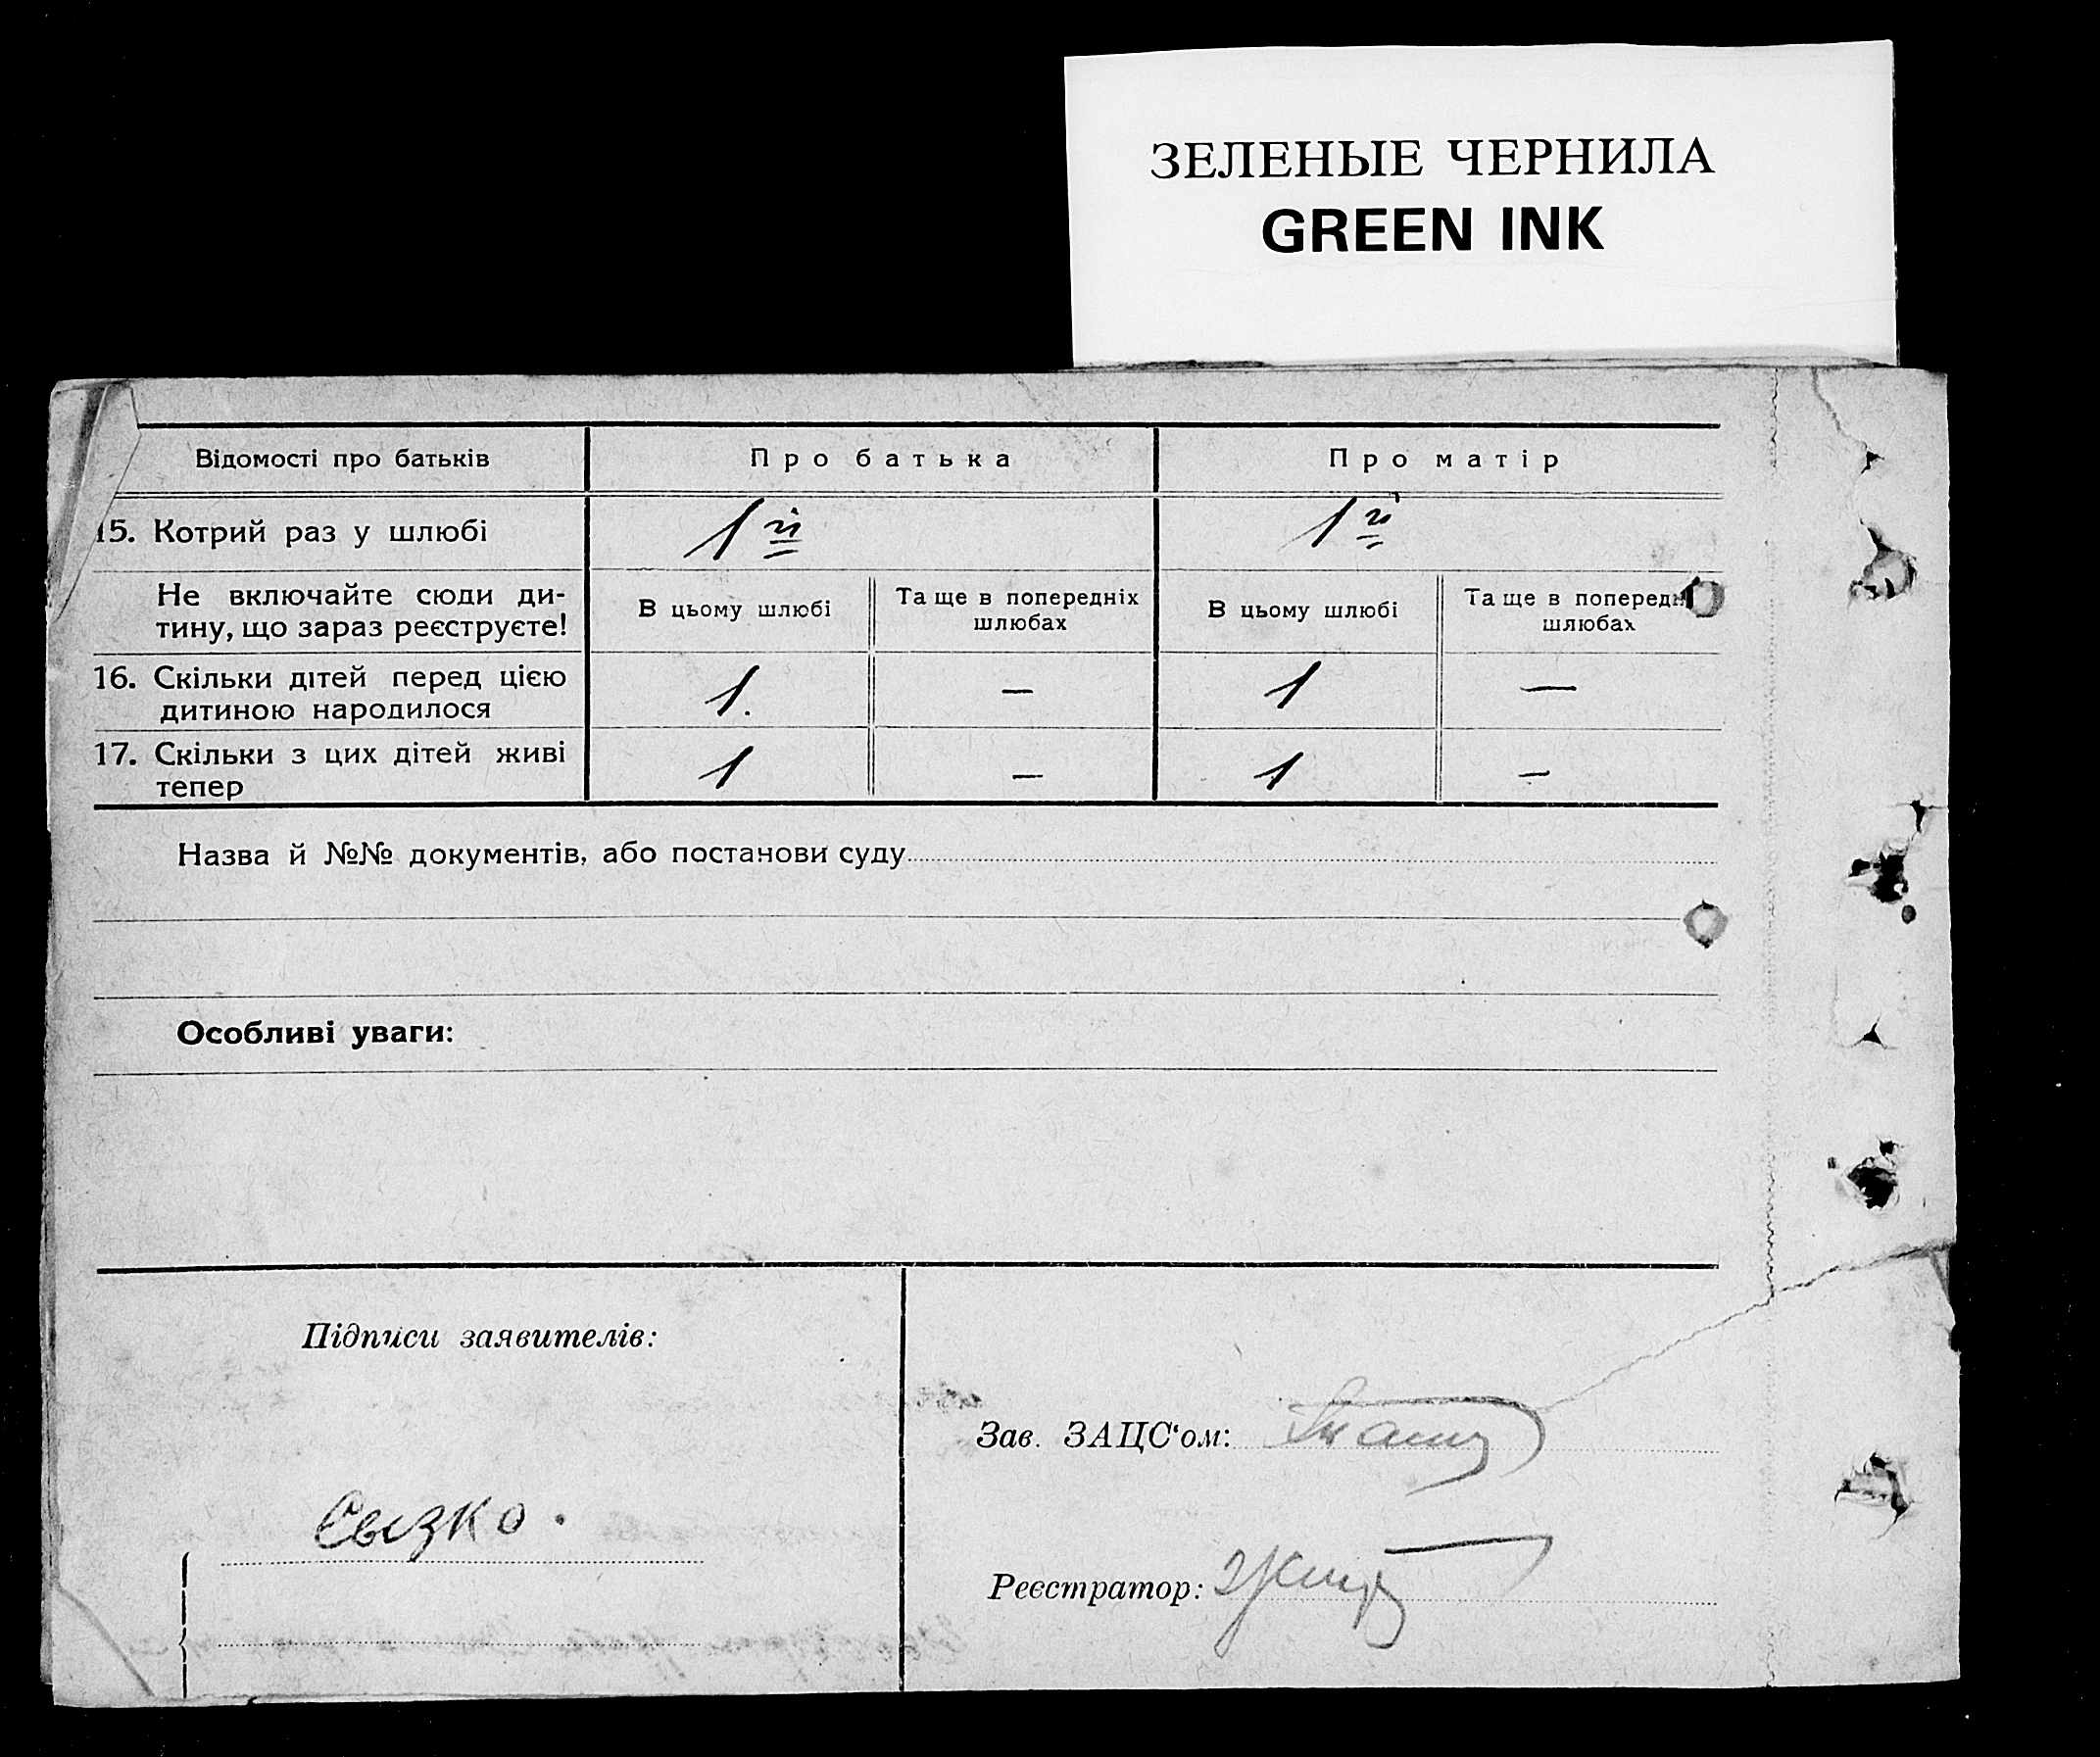 ЗЕЛЕНЫЕ ЧЕРНИЛА
GREEN INK
Відомості про батьків Про батька Про матір
15. Котрий раз у шлюбі 1й 1й
Не включайте сюди ди-
тину, що зараз реєструєте!
В цьому шлюбі
Та ще в попередніх
шлюбах
В цьому шлюбі
Та ще в попередн
шлюбах
16. Скільки дітей перед цією
дитиною народилося
1. — 1 —
17. Скільки з цих дітей живі
тепер
1 — 1 —
Назва й №№ документів, або постанови суду
Особливі уваги:
Підписи заявителів:
Зав. ЗАЦС‘ом:
Реєстратор: